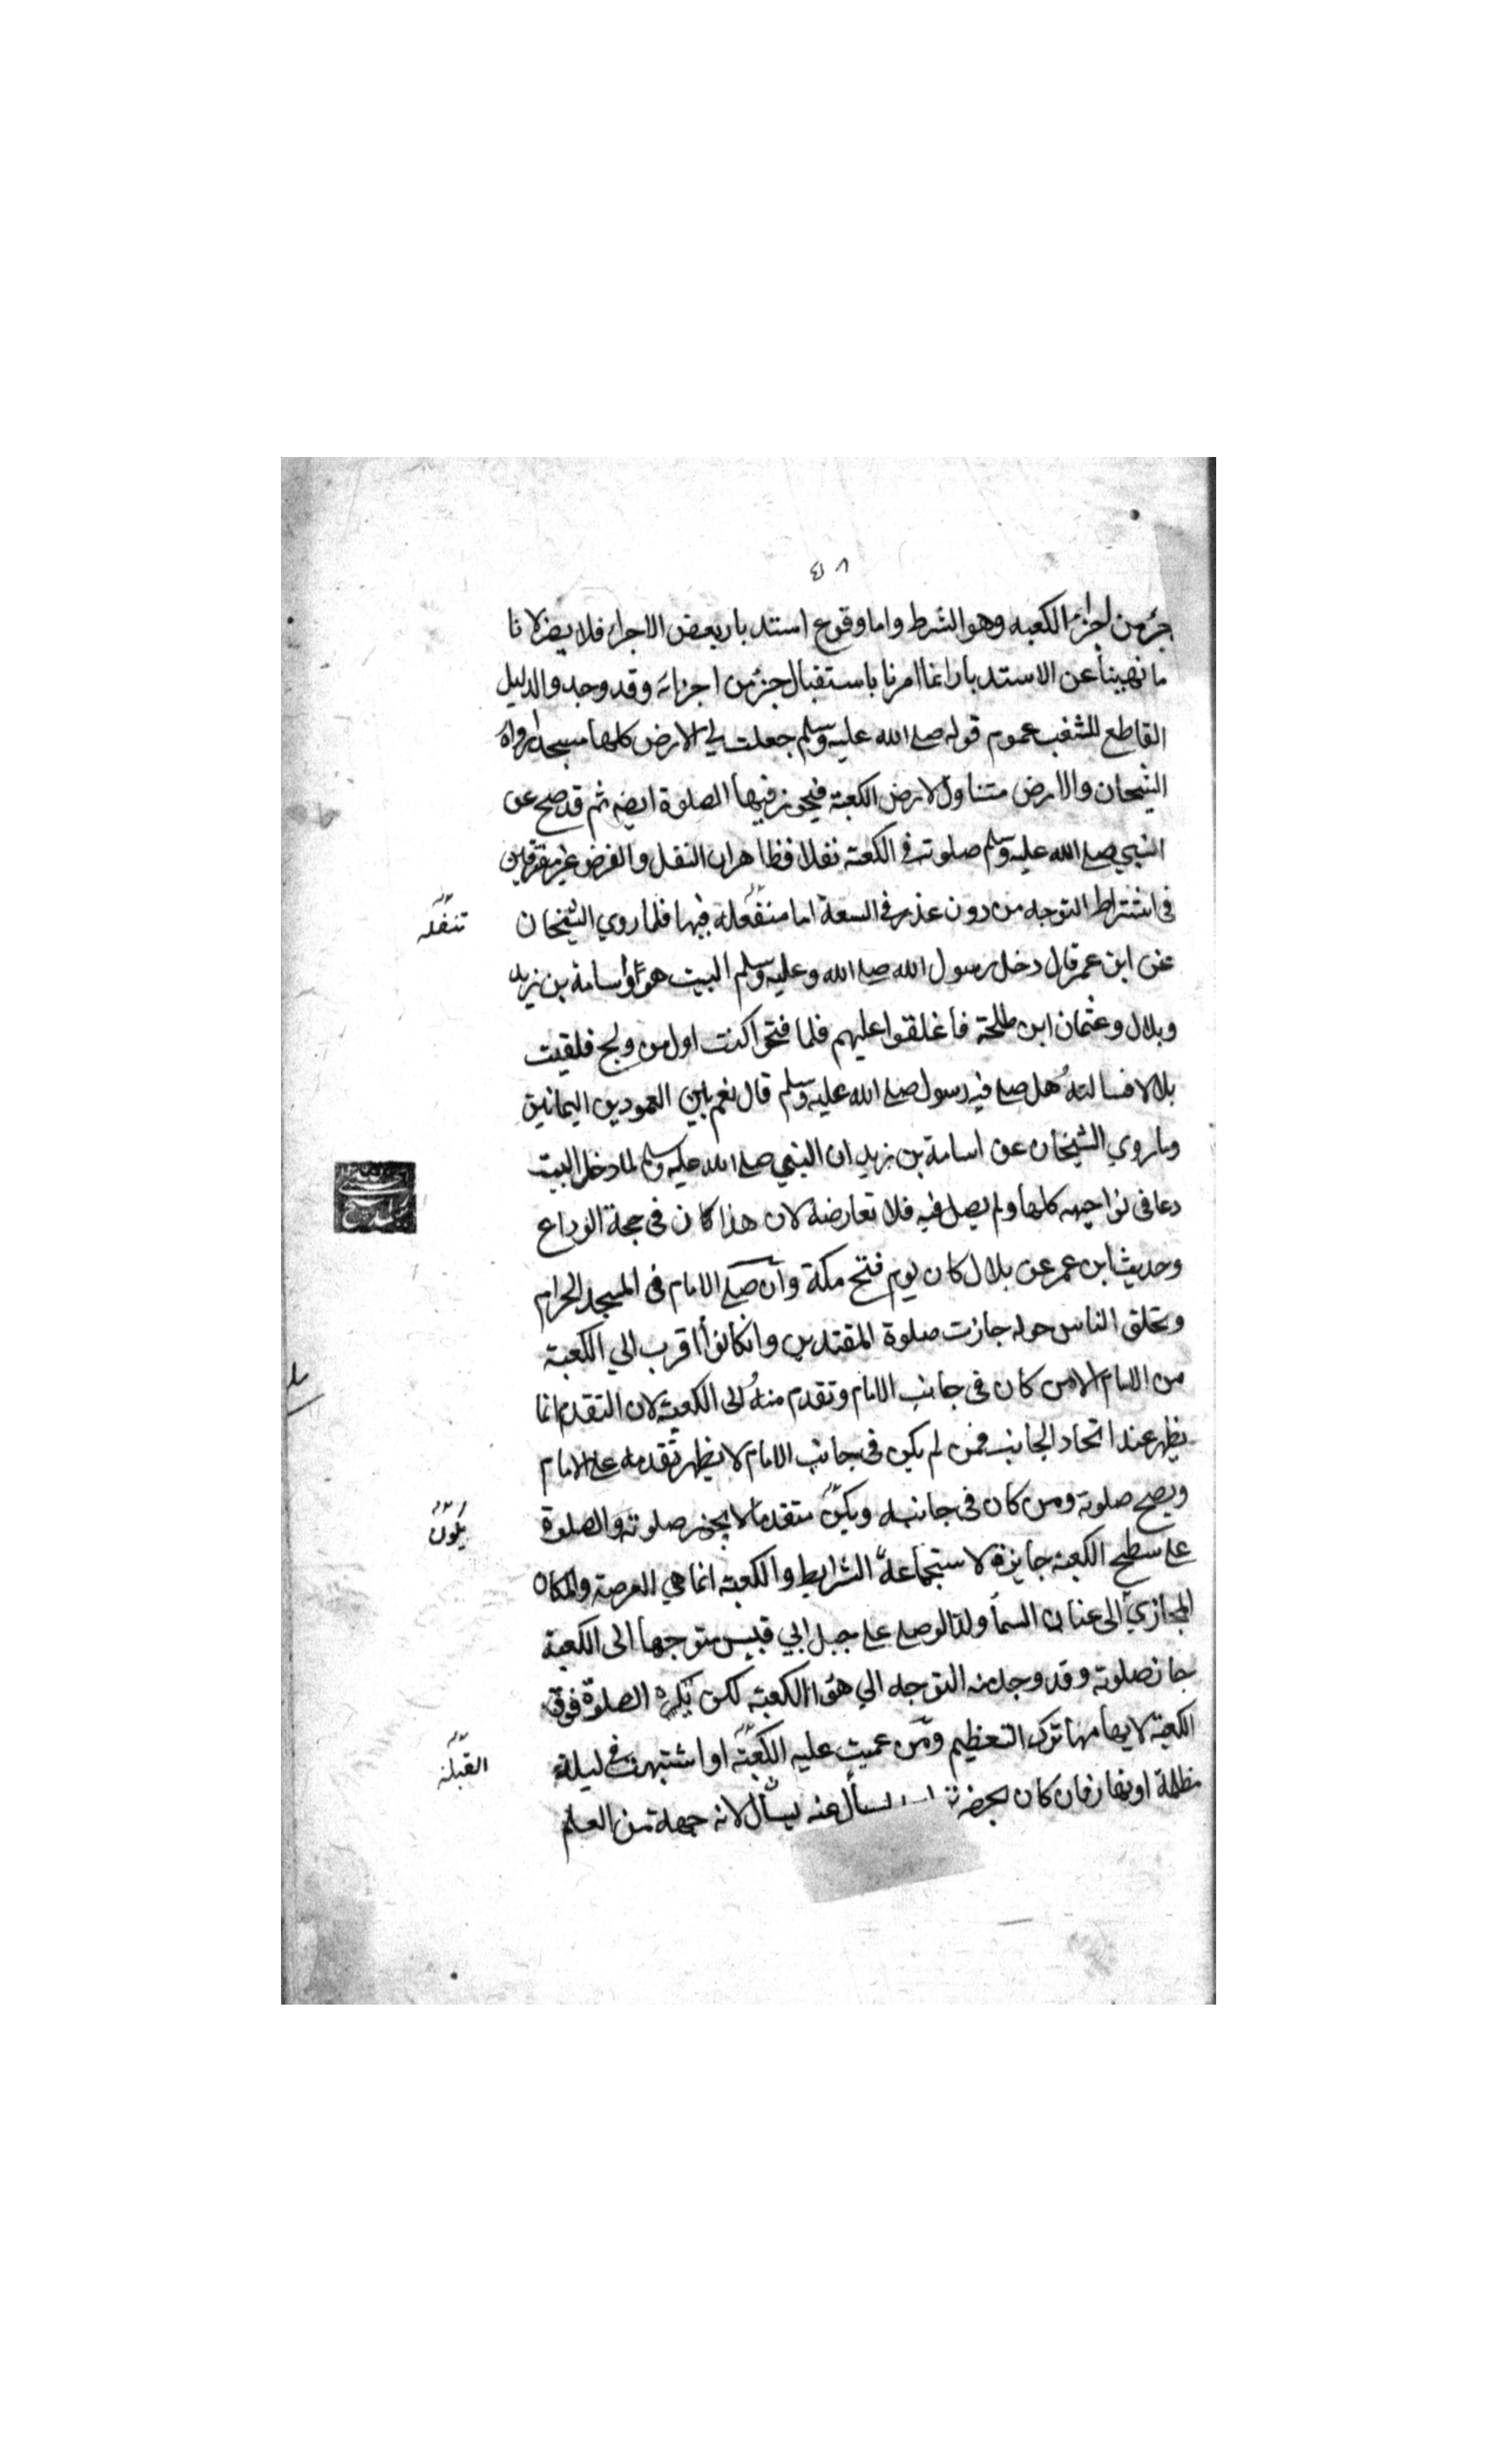 ٤٨
جزء من اجزاء الكعبه وهو الشرط واما وقوع استدبار بعض الاجزاء فلا يضر لانا
ما نهينا عن الاستدبار انما امرنا باستقبال جزء من اجزائه وقد وجد والدليل
القاطع للشغب عموم قوله صلى الله عليه وسلم جعلت لي الارض كلها مسجدا رواه
الشيخان والارض متناول لارض الكعبة فيجوز فيها الصلوة ايضه ثم قد صح عن
النبي صلى الله عليه وسلم صلوته في الكعبة نفلا فظاهر ان النفل والفرض غير مفترقين
في اشتراط التوجه من دون عذر في السعة اما منتفعله فيها فلما روي الشيخان
تنفله
عن ابن عمر قال دخل رسول الله صلى الله وعليه وسلم البيت هو واسامة بن زيد
وبلال وعثمان ابن طلحة فاغلقوا عليهم فلما فتحوا كنت اول من ولج فلقيت
بلالا فسالته هل صلى فيه رسول صلى الله عليه وسلم قال نعم بين العمودين اليمانين
وما روي الشيخان عن اسامة بن زيد ان النبي صلى الله عليه وسلم لما دخل البيت
دعا في نواحيه كلها ولم يصل فيه فلا تعارضه لان هذا كان في حجة الوداع
وحديث ابن عمر عن بلال كان يوم فتح مكة وان صلى الامام في المسجد الحرام
وتحلق الناس حوله جازت صلوة المقتدين وانكانوا اقرب الي الكعبة
من الامام الا من كان في جانب الامام وتقدم منه الى الكعبة لان التقدم انما
يظهر عند اتحاد الجانب فمن لم يكن في جانب الامام لا يظهر تقدمه على الامام
ويصح صلوته ومن كان في جانبه ويكن متقدما لا يجوز صلوته والصلوة
يكون
على سطح الكعبة جايزة لاستجماعه الشرايط والكعبة انما هي العرصة والمكان
المجازي الى عنان السما ولذا لو صلى على جبل ابي قبيس متوجها الى الكعبة
جاز صلوته وقد وجد منه التوجه الي هوا الكعبة لكن يكره الصلوة فوق
الكعبة لايهامها ترك التعظيم ومن عميت عليه الكعبة او اشتبهت في ليلة
القبلة
مظلمة او بمفاز فان كان بحضرته يسأل عنه يسأل لانه جهة من العلم